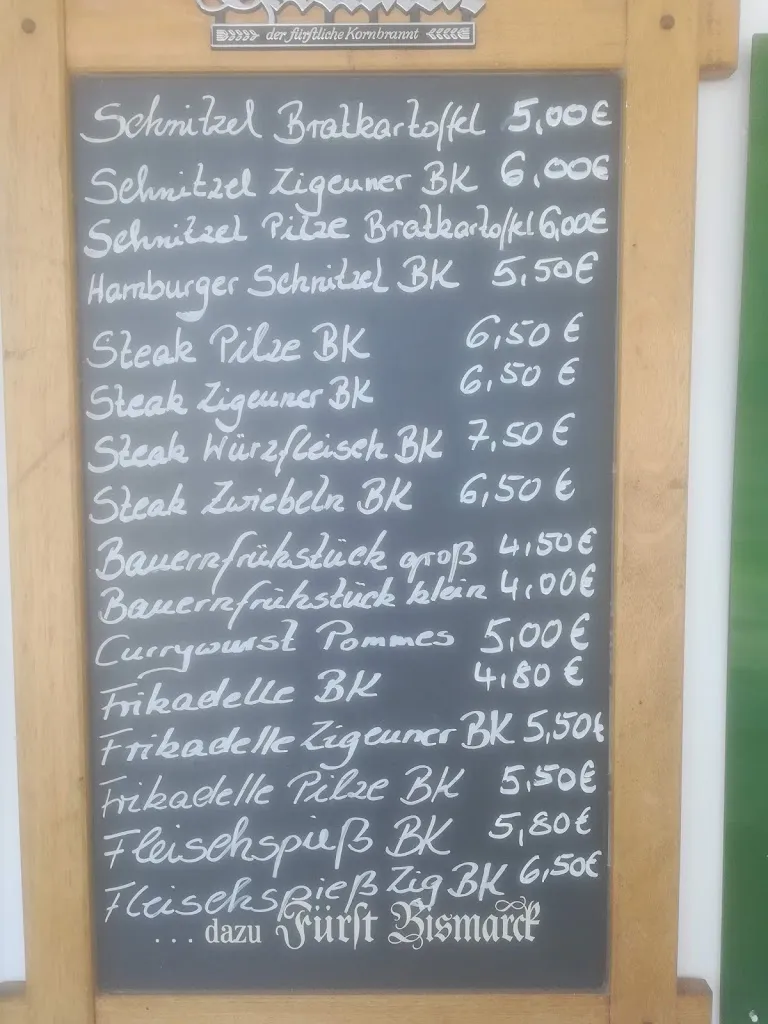 der fürstliche Kornbrannt
Schnitzel Bratkartoffel 5,00€
Schnitzel Zigeuner BK 6,00€
Schnitzel Pilze Bratkartoffel 6,00€
Hamburger Schnitzel BK 5,50€
Steak Pilze BK 6,50 €
Steak Zigeuner BK 6,50 €
Steak Würzfleisch BK 7,50 €
Steak Zwiebeln BK 6,50 €
Bauernfrühstück groß 4,50€
Bauernfrühstück klein 4,00€
Currywurst Pommes 5,00€
Frikadelle BK 4,80 €
Frikadelle Zigeuner BK 5,50€
Frikadelle Pilze BK 5,50€
Fleischspieß BK 5,80€
Fleischspieß Zig BK 6,50€
... dazu Fürst Bismarck